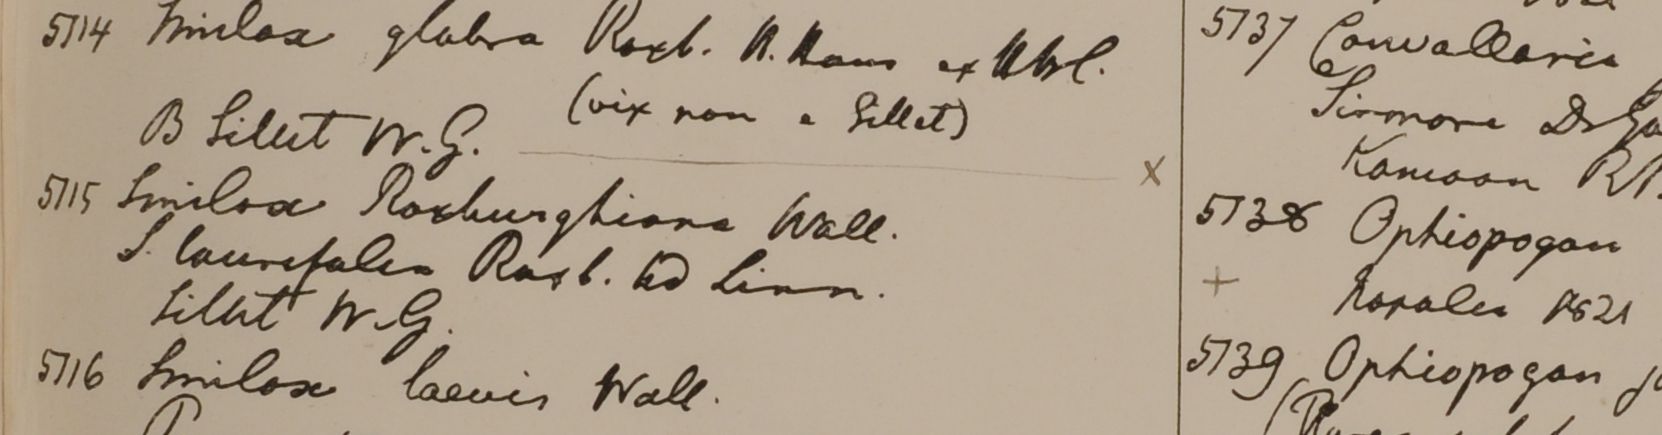 5114 Smilax glabra Roxb. H. Ham ex Hbl.
(vix non e Sillet)
B Sillet W.G.
5115 Smilax Roxburghiana Wall.
S. laurifolia Roxb. Linn.
Sillet W.G.
5116 Smilax laevis Wall.
5137 Convallaria
Sirmore Dr Go
Kamaon
5138 Ophiopogon
1821
5139 Ophiopogon